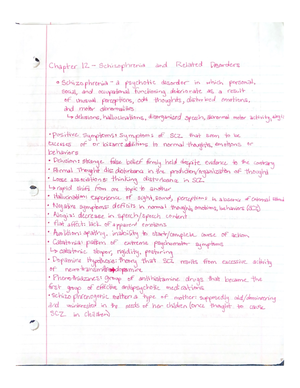 Chapter 12 - Schizophrenia and Related Disorders
* Schizophrenia - a psychotic disorder in which personal,
social, and occupational functioning deteriorate as a result
of unusual perceptions, odd thoughts, disturbed emotions,
and motor abnormalities
↳ delusions, hallucinations, disorganized speech, abnormal motor activity,
• Positive Symptoms: Symptoms of SCZ that seem to be
excesses of or bizarre additions to normal thoughts, emotions, or
behaviors
• Delusion: strange false belief firmly held despite evidence to the contrary
• Formal Thought disturbance in the production/organization of thought
• Loose associations: thinking disturbance in SCZ
↳ rapid shifts from one topic to another
• Hallucination: experience of sight, sound, perceptions in absence of
• Negative symptoms: deficits in normal thoughts, emotions, behaviors (SCZ)
• Alogia: decrease in speech/speech content
• Flat affect: lack of apparent emotions
• Avolition: apathy, inability to start/complete course of action
• Catatonia: pattern of extreme psychomotor symptoms
↳ catatonic stupor, rigidity, posturing
• Dopamine Hypothesis: theory that SCZ results from excessive activity
of neurotransmitter dopamine
• Phenothiazines: group of antihistamine drugs that became the
first group of effective antipsychotic medications
• Schizophrenogenic mother: a type of mother supposedly cold/domineering
and uninterested in the needs of her children (once thought to cause
SCZ in children)